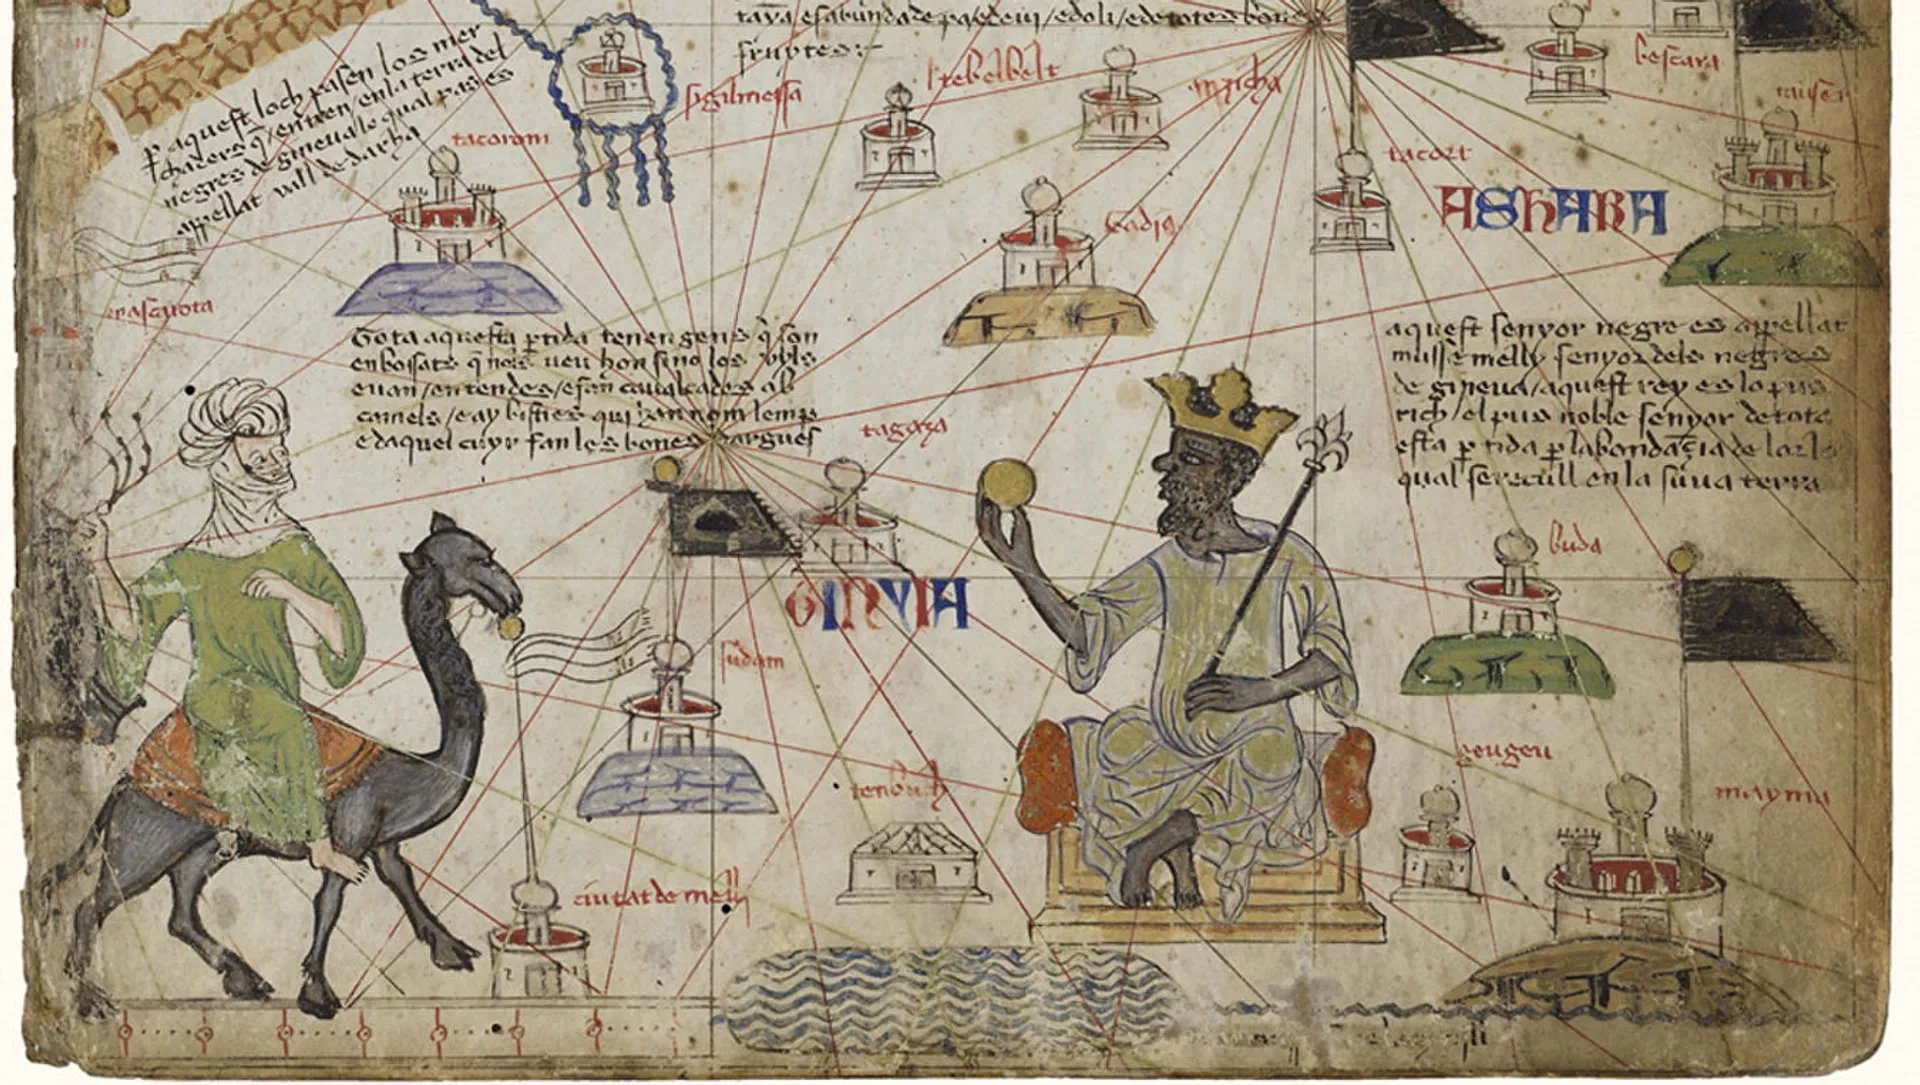 taña es abundade pa e de vi / e doli / e de totes bones
fruytes:-
p aquest loch pasen los mer
chaders q̄ / entren / en la terra del
negres de gineua lo qual pas es
appellat vall de darha
sigilmessa
tacorom
tebelbelt
anzicha
bescara
tacort
ASHARA
mascuota
Tota aquesta ptida tenen gens q̄ son
enboisats q̄ nols veu hon sino los vyls
e van / en tendes / e fan caualcades ab
camels / e ay bisties qui han nom lemp
e daquel cuyr fan les bones dargues
aquest senyor negre es appellat
musse melly senyor dels negres
de gineua / aquest rey es lo pus
rich / el pus noble senyor de tota
esta ptida p labondaçia de lor lo
qual se recull en la suua terra
tagaza
buda
GINYIA
sudam
tenbuch
geugeu
mayma
ciutat de melly